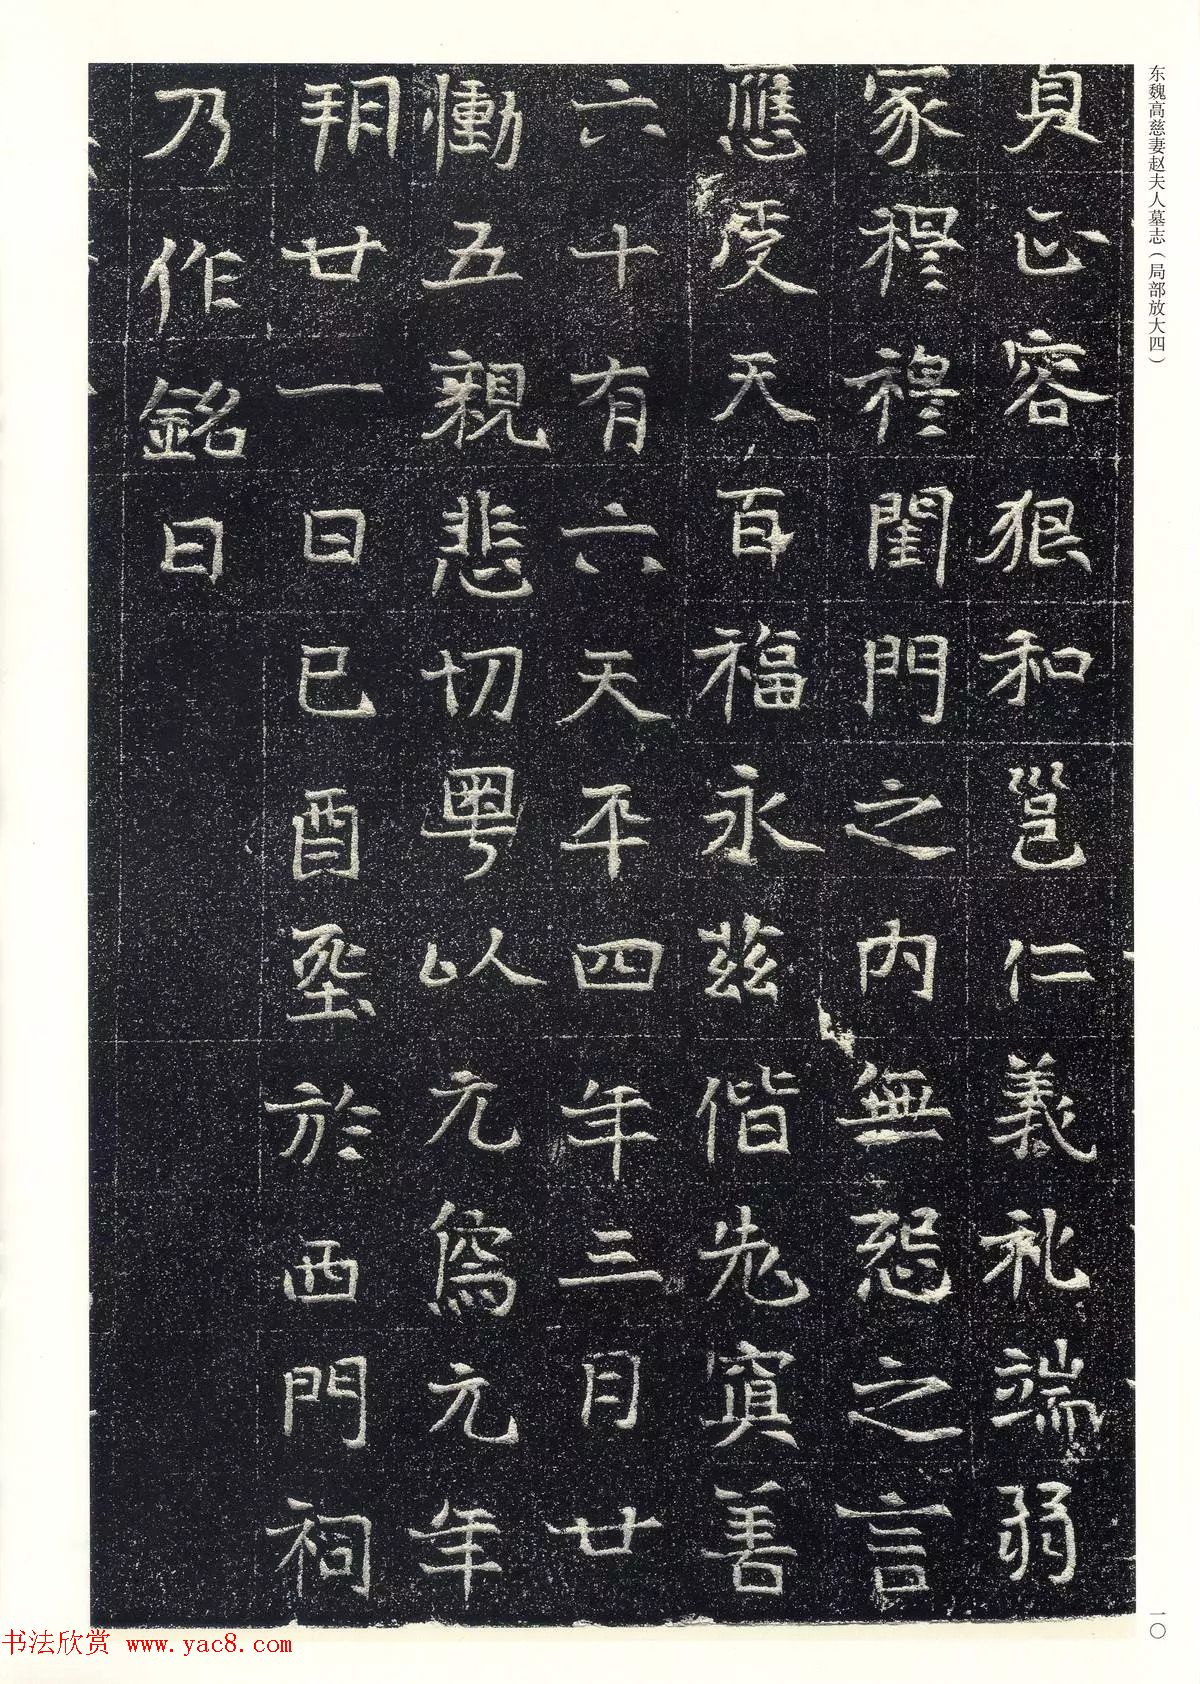 东魏高慈妻赵夫人墓志（局部放大四）
貞正容狠和邕仁義礼端弱
家穆穆閨門之內無怨之言
應受天百福永兹偕老寘善
六十有六天平四年三月廿
慟五親悲切粵以元為元年
朔廿一日己酉堊於西門祠
乃作銘曰
一〇
书法欣赏 www.yac8.com